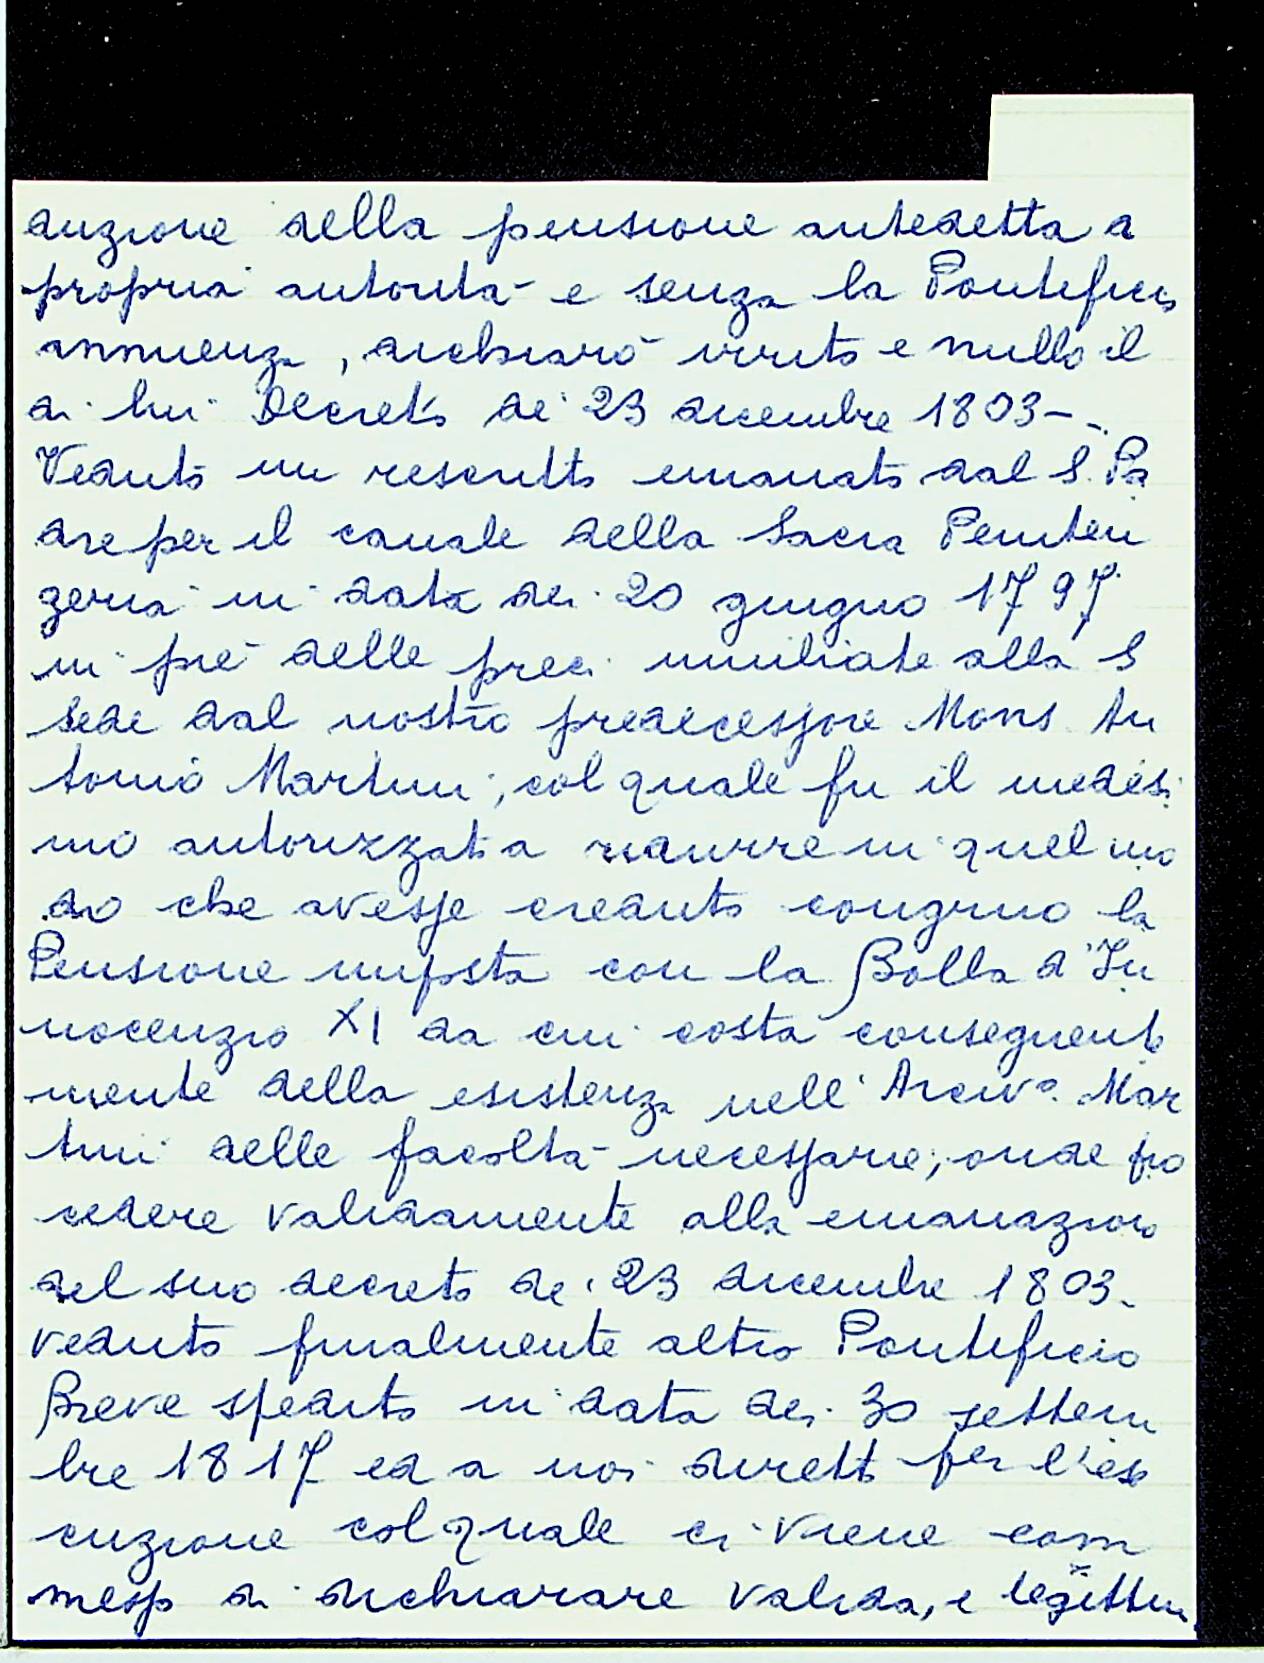 duzione della pensione antedetta a
propria autorità e senza la Pontificia
annuenza, dichiarò irrito e nullo il
di lui Decreto de' 23 dicembre 1803-.
Veduto un rescritto emanato dal S. Pa
dre per il canale della Sacra Peniten
zeria in data dei 20 giugno 1797
in piè delle preci umiliate alla S
Sede dal nostro predecessore Mons An
tonio Martini, col quale fu il medesi
mo autorizzato a ridurre in quel mo
do che avesse creduto congruo la
Pensione imposta con la Bolla d'In
nocenzio XI da cui costa conseguente
mente della esistenza nell' Arciv.o Mar
tini delle facoltà necessarie, onde pro
cedere validamente alla emanazione
del suo decreto de' 23 dicembre 1803.
Veduto finalmente altro Pontificio
Breve spedito in data dei 30 settem
bre 1817 ed a noi diretto per l'ese
cuzione col quale ci viene com
messo di dichiarare valida, e legittim